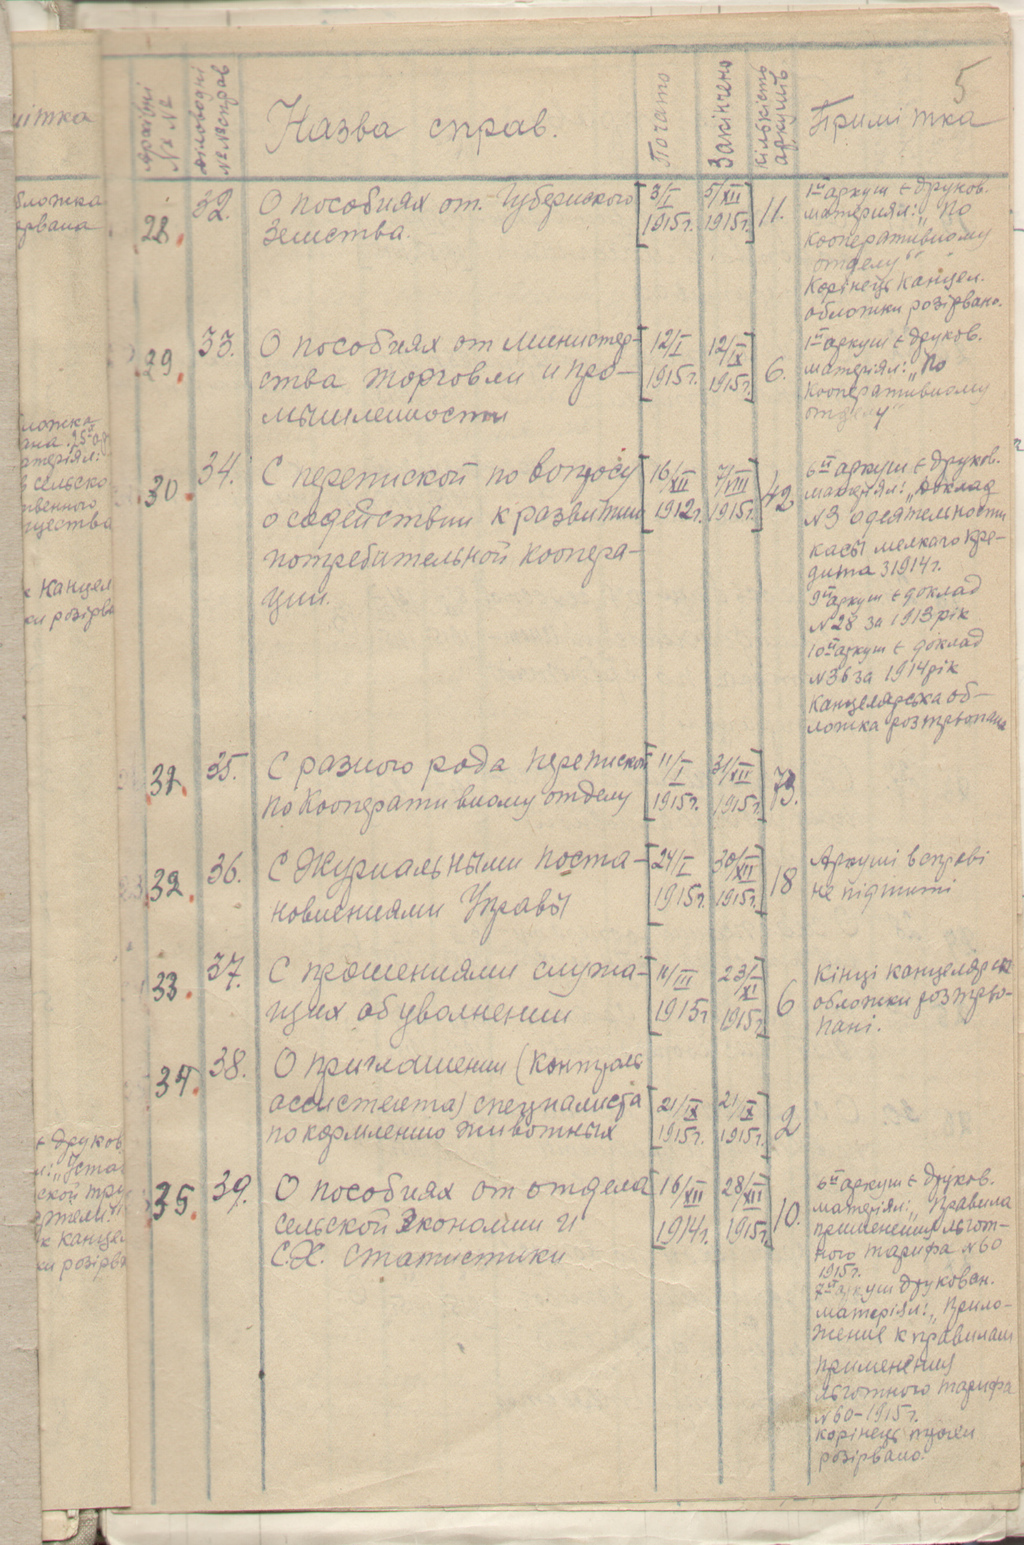 5
Архівні №№
діловодні №№ справ
Назва справ.
Почато
Закінчено
Кількість аркушів
Примітка
28. 32. О пособиях от. Губернского
Земства.
3/I 1915г.
5/XII 1915г.
11.
1ий аркуш є друков.
матеріял: „По
кооперативному
отделу"
Корінець канцел.
обложки розірвано.
29. 33. О пособиях от министер-
ства торговли и про-
мышленности
12/I 1915г.
12/IX 1915г.
6.
1ий аркуш є друков.
матеріял: „По
кооперативному
отделу"
30. 34. С перепиской по вопросу
о содействии к развитию
потребительной коопера-
ции.
16/XII 1912г.
7/VIII 1915г.
42
6ий аркуш є друков.
матеріял: „Доклад
№3 о деятельности
кассы мелкаго кре-
дита з 1914г.
9ий аркуш є доклад
№28 за 1913 рік
10ий аркуш є доклад
№36 за 1914 рік
Канцелярська об-
ложка розтрьопана
31. 35. С разного рода перепиской
по Кооперативному отделу
11/I 1915г.
31/XII 1915г.
73.
32. 36. С Журнальными поста-
новлениями Управы
24/I 1915г.
30/XII 1915г.
18
Аркуші в справі
не підшиті
33. 37. С прошениями служа-
щих об увольнении
11/III 1915г
23/XI 1915г.
6
Кінці канцелярськ
обложки розтрьо-
пані.
34. 38. О приглашении (контроль
ассистента) специалиста
по кормлению животных
21/IX 1915г.
21/IX 1915г.
2
35. 39. О пособиях от отдела
сельской Экономии и
С.Х. Статистики
16/XII 1914г.
28/XII 1915г.
10.
6ий аркуш є друков.
матеріял: „Правила
применения льгот-
ного тарифа №60
1915г.
7ий аркуш друкован.
матеріял: „Прило-
жение к правилам
применения
льготного тарифа
№60-1915г.
корінець
розірвано.
мітка
бложка
ірвана
ложка
сельско
твенного
щества
к канцел
ки розірва
є друков
л: „Уста
ской
к канцел
ки розірва